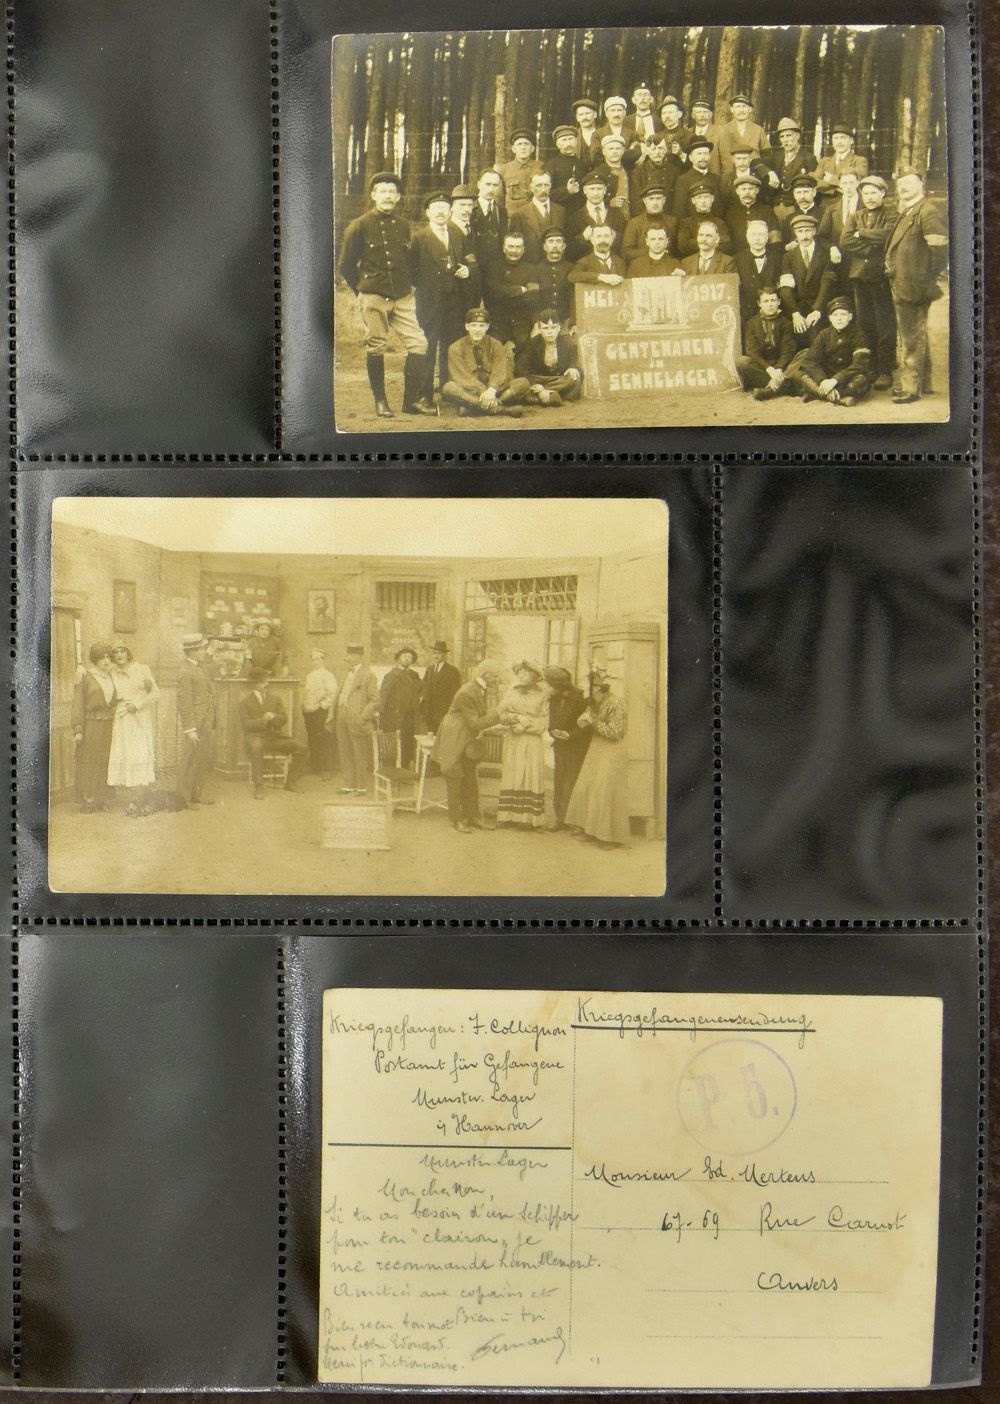 MEI. 1917.
GENTENAREN.
IN
SENNELAGER.
Kriegsgefangen: F. Collignon
Postamt für Gefangene
Munster. Lager
i/ Hannover
Kriegsgefangenensendung
P 5.
Munster Lager
Mon cher Mon,
Si tu as besoin d'un Schipper
pour ton "clairon", je
me recommande humblement.
Amitiés aux copains et
Bien à toi
Bien reçu ton mot
sur lettre Edouard.
Merci pr dictionnaire.
Fernand
Monsieur Ed. Mertens
67-69 Rue Carnot
Anvers